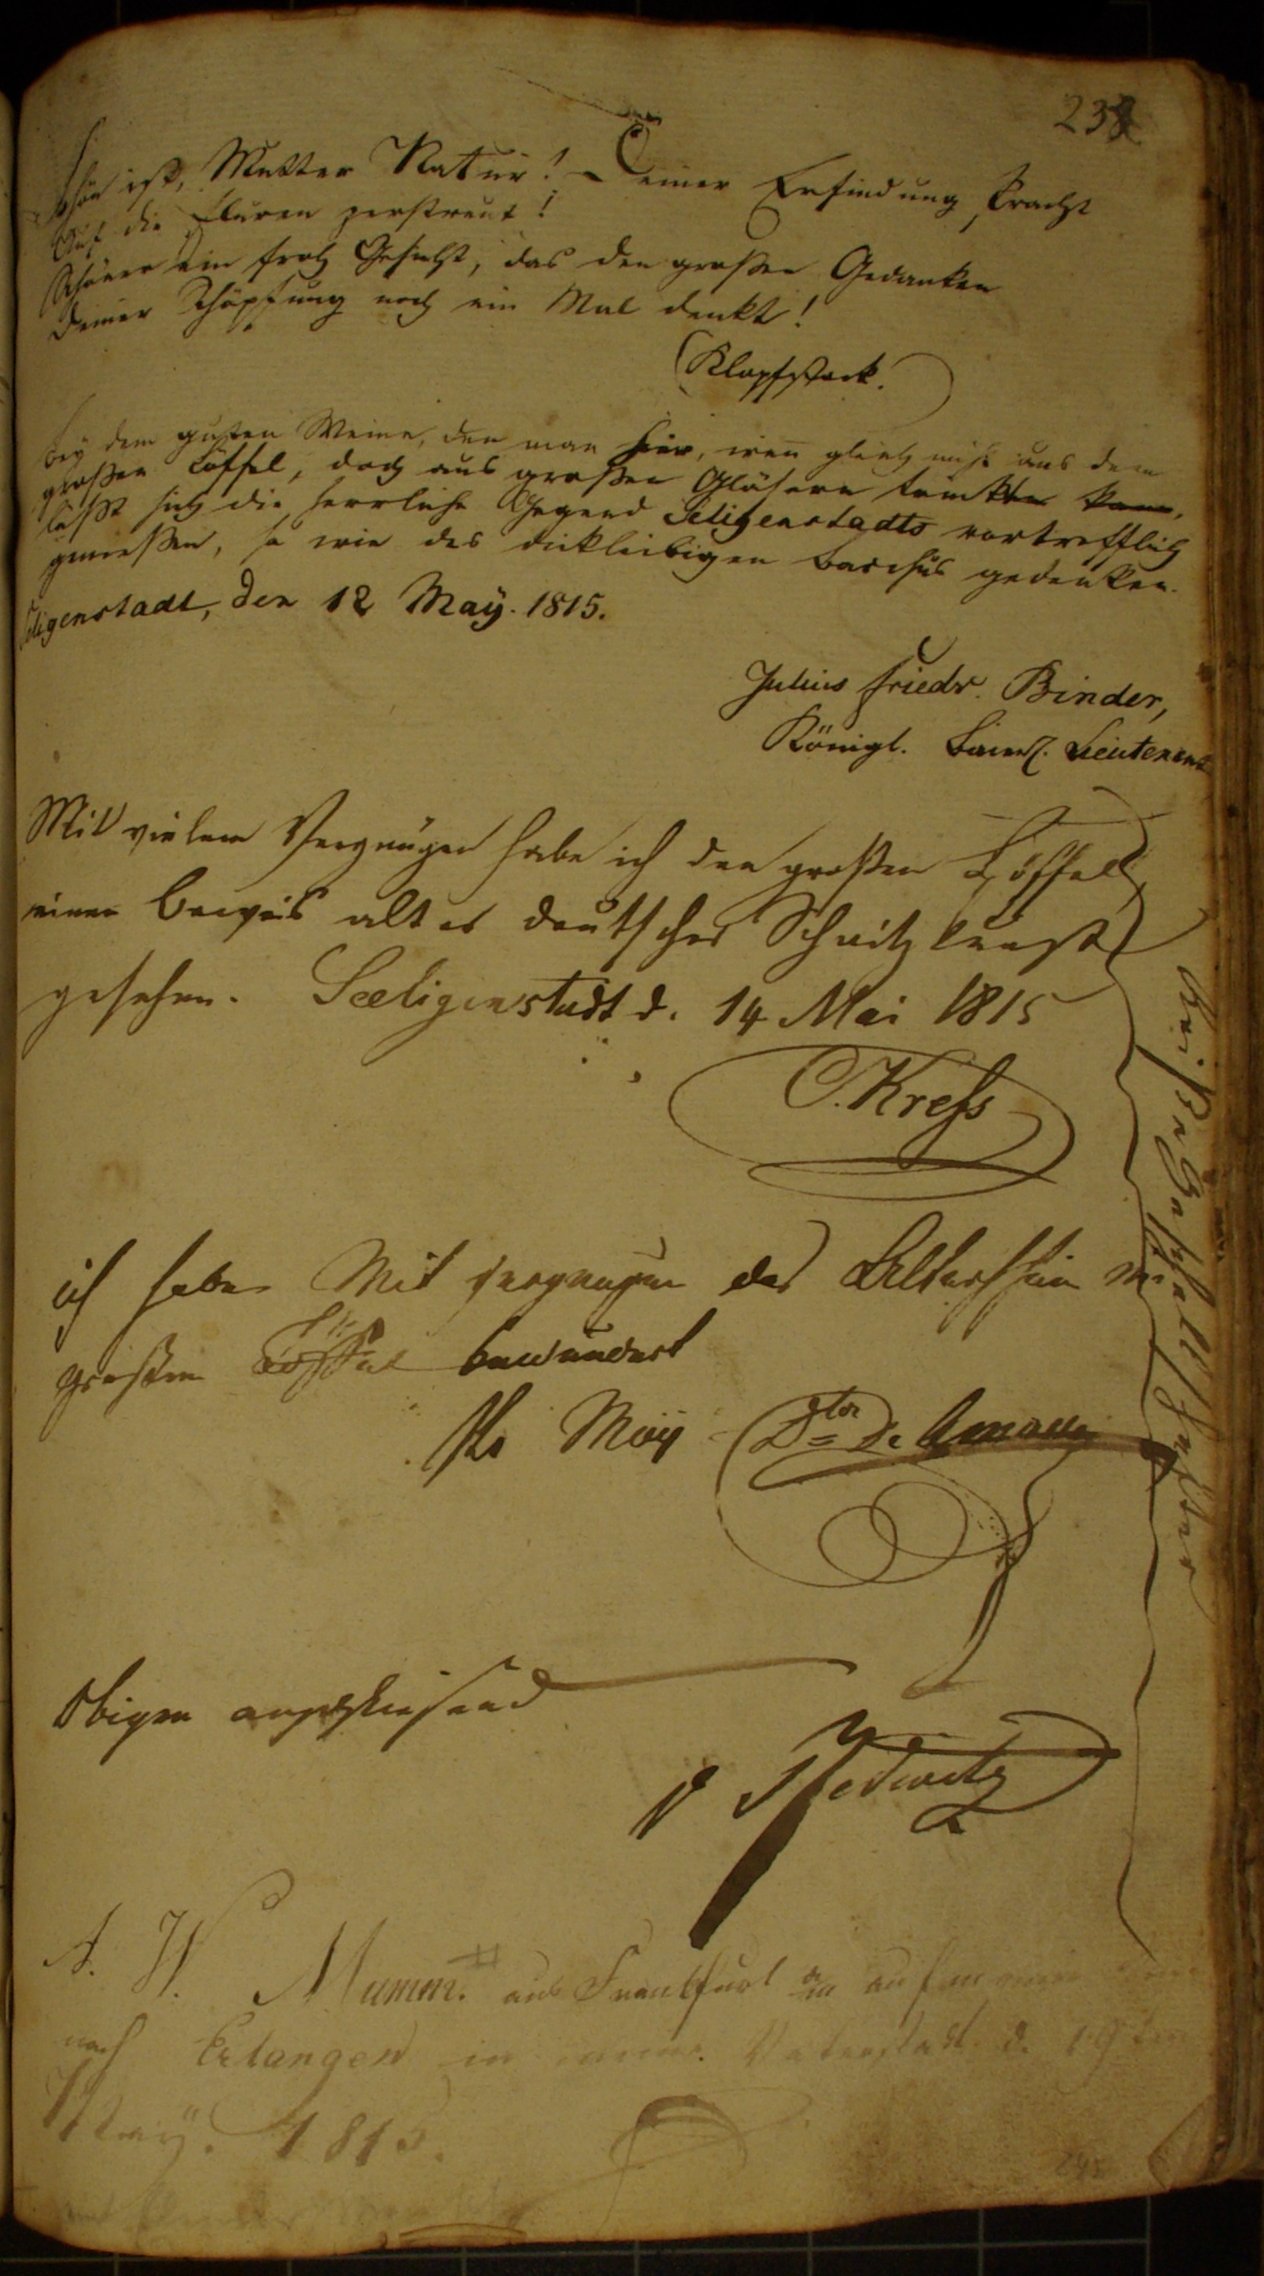 238
Schön ist, Mutter Natur! Deiner Erfindung Pracht
Auf die Fluren zerstreut!
Schöner ein froh Gesicht, das den großen Gedanken
Deiner Schöpfung noch ein Mal denkt!
(Klopfstock.)
Bey dem guten Weine, den man hier, wenn gleich nicht aus dem
großen Löffel, doch aus großen Gläsern trinkt kann,
läßt sich die herrliche Gegend Seligenstadts vortrefflich
genießen, so wie des dickleibigen Bacchus gedenken.
Seligenstadt, den 12 May. 1815.
Julius Friedr. Binder,
Königl. Baier. Lieutenant
Mit vielem Vergnügen habe ich den großen Löffel,
einen Beweis alter deutscher Schnitzkunst
gesehen. Seeligenstadt d. 14 Mai 1815
C. Kress
ich habe Mit vergnugen das
großen Löffel bewundert
May
Obigen anschliesend
v Redwitz
A. W. Mumm. aus Frankfurt a/m auf
nach Erlangen in Vaterstadt. d. 19ten
May. 1815.